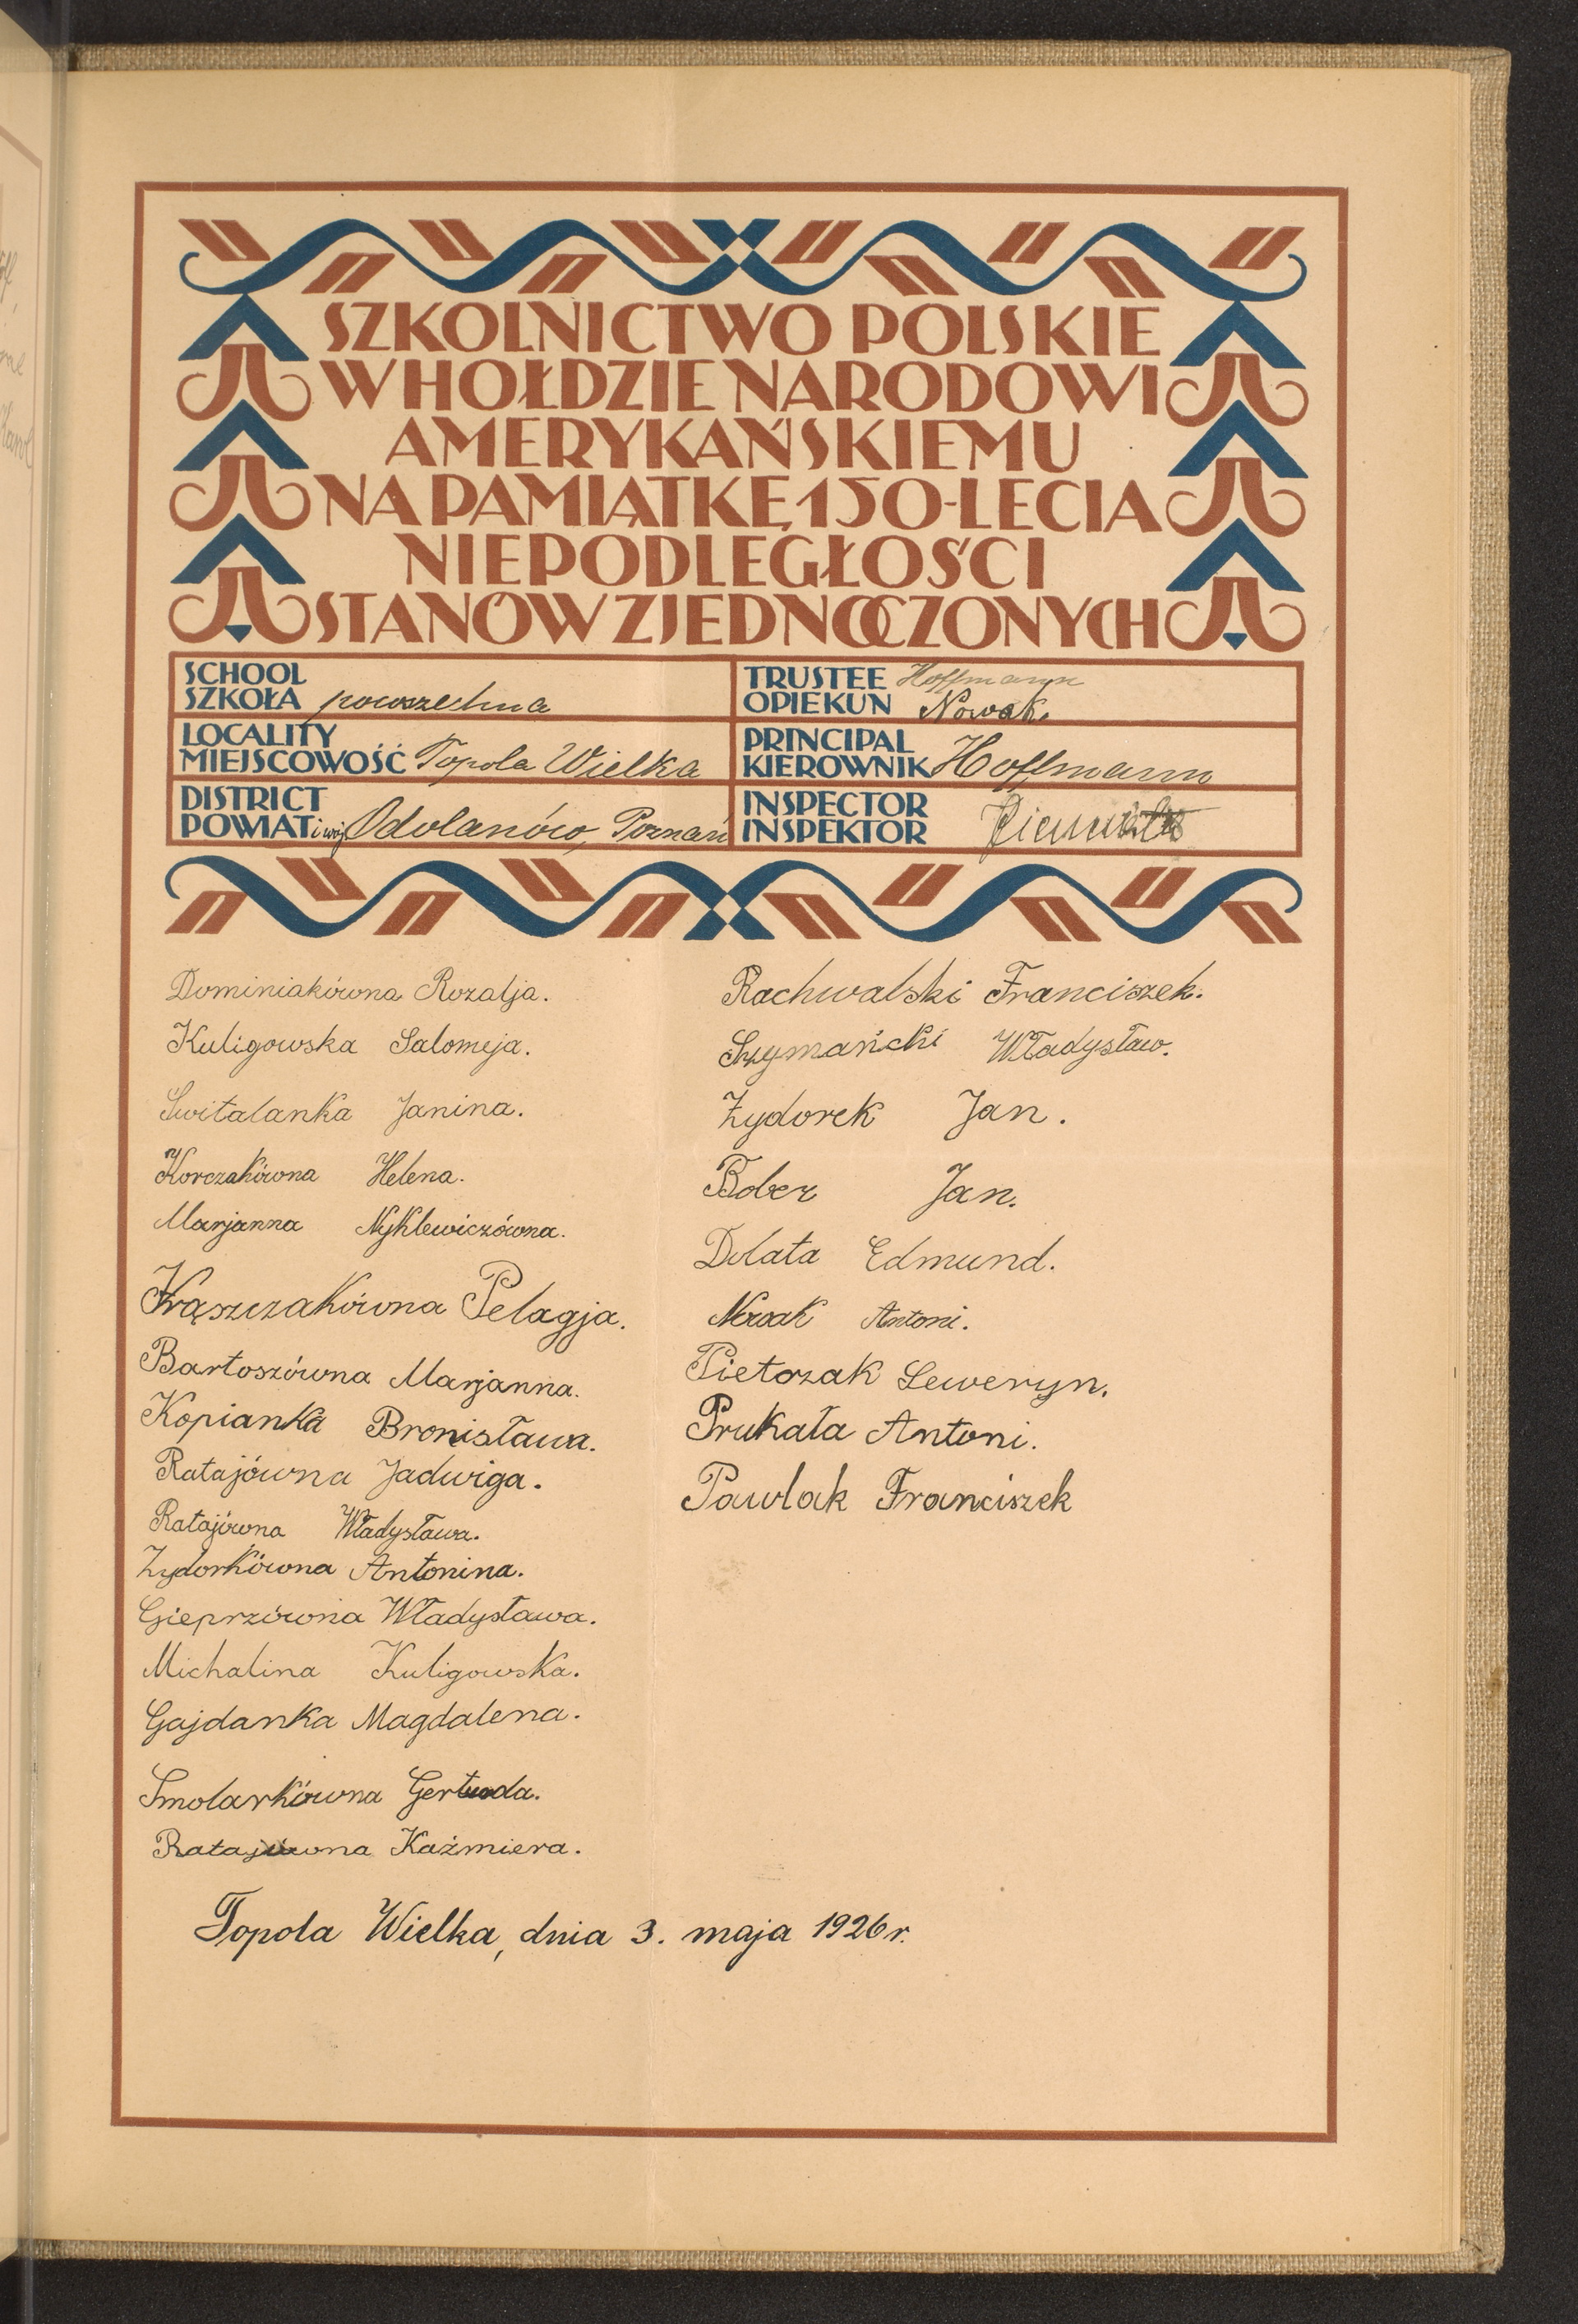 SZKOLNICTWO POLSKIE
W HOŁDZIE NARODOWI
AMERYKAŃSKIEMU
NA PAMIĄTKĘ 150-LECIA
NIEPODLEGŁOŚCI
STANÓW ZJEDNOCZONYCH
SCHOOL
SZKOŁA powszechna
LOCALITY
MIEJSCOWOŚĆ Topola Wielka
DISTRICT
POWIAT i woj. Odolanów, Poznań
TRUSTEE Hoffmann
OPIEKUN Nowak.
PRINCIPAL
KIEROWNIK Hoffmann
INSPECTOR
INSPEKTOR
Dominiakówna Rozalja.
Kuligowska Salomeja.
Switalanka Janina.
Korczakówna Helena.
Marjanna Nyklewiczówna.
Krąszczakówna Pelagja.
Bartoszówna Marjanna.
Kopianka Bronisława.
Ratajówna Jadwiga.
Ratajówna Władysława.
Zydorkówna Antonina.
Gieprzówna Władysława.
Michalina Kuligowska.
Gajdanka Magdalena.
Smolarkówna Gertruda.
Ratajówna Kaźmiera.
Rachwalski Franciszek.
Szymański Władysław.
Zydorek Jan.
Bober Jan.
Dolata Edmund.
Nowak Antoni.
Pietrzak Seweryn.
Prukała Antoni.
Pawlak Franciszek
Topola Wielka, dnia 3. maja 1926 r.